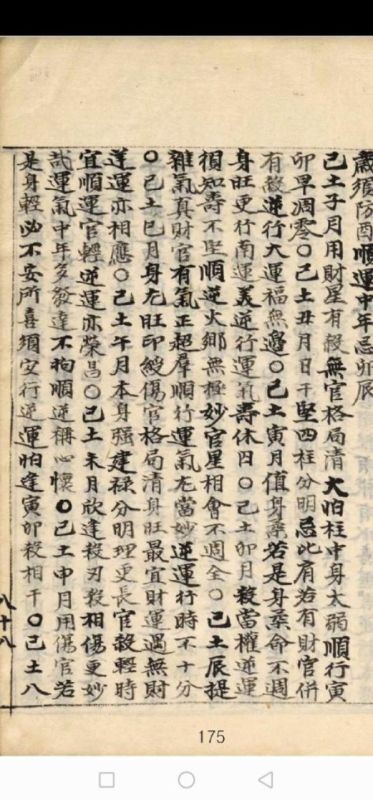 歲須防酉順運中年忌卯辰
己土子月用財星有殺無官格局清大怕柱中身太弱順行寅
卯早凋零〇己土丑月日干堅四柱分明忌比肩若有財官併
有殺逆行大運福無邊〇己土寅月值身柔若是身柔命不週
身旺更行南運美逆行運氣壽休囚〇己土卯月殺當權逆運
須知壽不堅順逆火鄉無極妙官星相會不週全〇己土辰提
雜氣真財官有氣正超群順行運氣尤當妙逆運行時不十分
〇己土巳月身尤旺印綬傷官格局清身旺最宜財運遇無財
逆運亦相應〇己土午月本身強建祿分明理更長官殺輕時
宜順運官輕逆運亦榮昌〇己土未月欣逢殺刃殺相傷更妙
哉運氣中年多發達不拘順逆稱心懷〇己土申月用傷官若
是身輕必不安所喜須安行逆運怕逢寅卯殺相干〇己土八
八十八
175